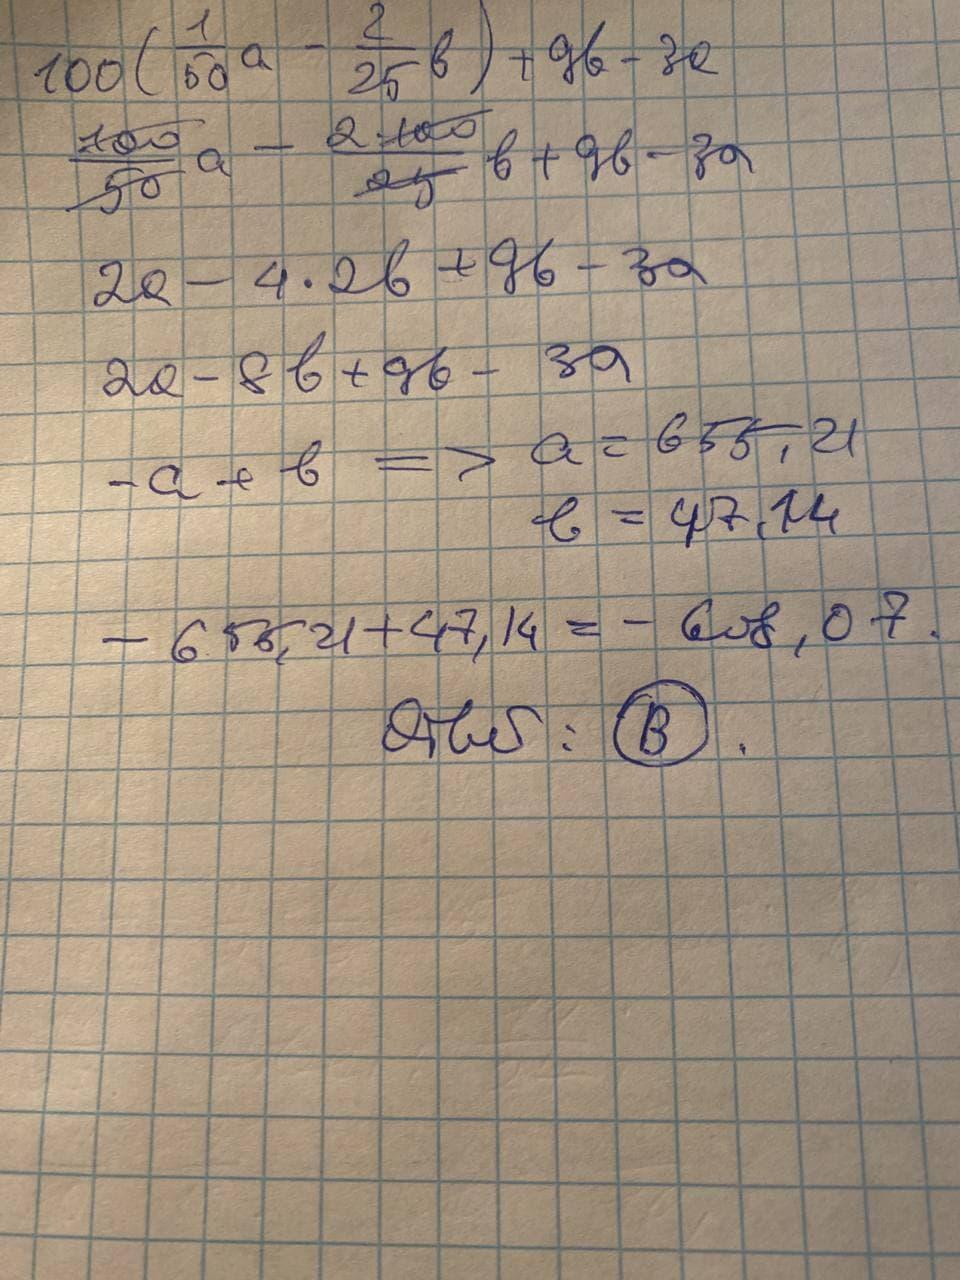 100(1/50 a - 2/25 b) + 9b - 3a
100/50 a - 2·100/25 b + 9b - 3a
2a - 4·2b + 9b - 3a
2a - 8b + 9b - 3a
-a + b => a = 655,21
b = 47,14
- 655,21 + 47,14 = - 608,07.
Ответ: B.